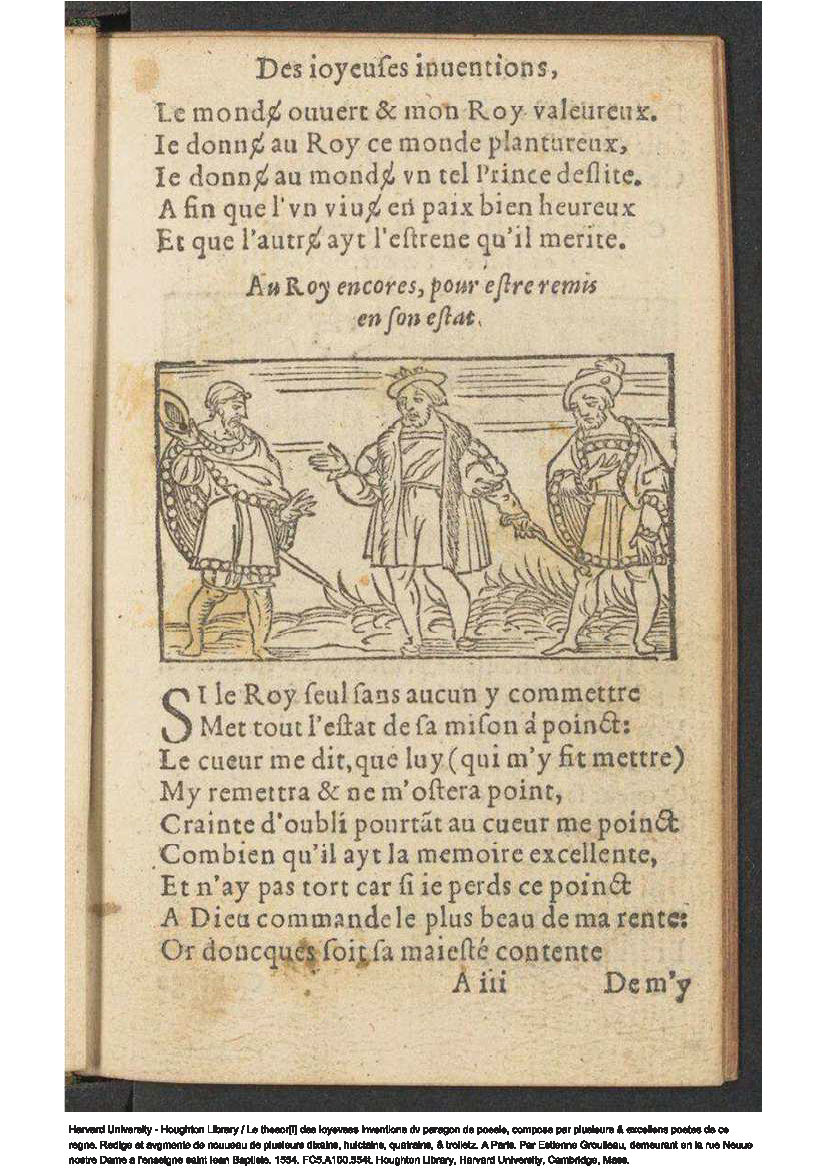 Des ioyeuſes inuentions,
Le mondɇ ouuert & mon Roy valeureux.
Ie donnɇ au Roy ce monde plantureux,
Ie donnɇ au mondɇ vn tel Prince deſlite.
A fin que l'vn viuɇ en paix bien heureux
Et que l'autrɇ ayt l'eſtrene qu'il merite.
Au Roy encores, pour eſtre remis
en ſon eſtat.
SI le Roy ſeul ſans aucun y commettre
Met tout l'eſtat de ſa miſon á poinct:
Le cueur me dit, que luy (qui m'y fit mettre)
My remettra & ne m'oſtera point,
Crainte d'oubli pourtãt au cueur me poinct
Combien qu'il ayt la memoire excellente,
Et n'ay pas tort car ſi ie perds ce poinct
A Dieu commande le plus beau de ma rente:
Or doncques ſoit ſa maieſté contente
A iii De m'y
Harvard University - Houghton Library / Le thesor[!] des ioyevses inventions dv paragon de poesie, compose par plusieurs & excellens poetes de ce
regne. Redige et avgmente de nouueau de plusieurs dixains, huictains, quatrains, & trolletz. A Paris. Par Estienne Groulleau, demeurant en la rue Neuue
nostre Dame a l'enseigne saint Iean Baptiste. 1554. FC5.A100.554t. Houghton Library, Harvard University, Cambridge, Mass.